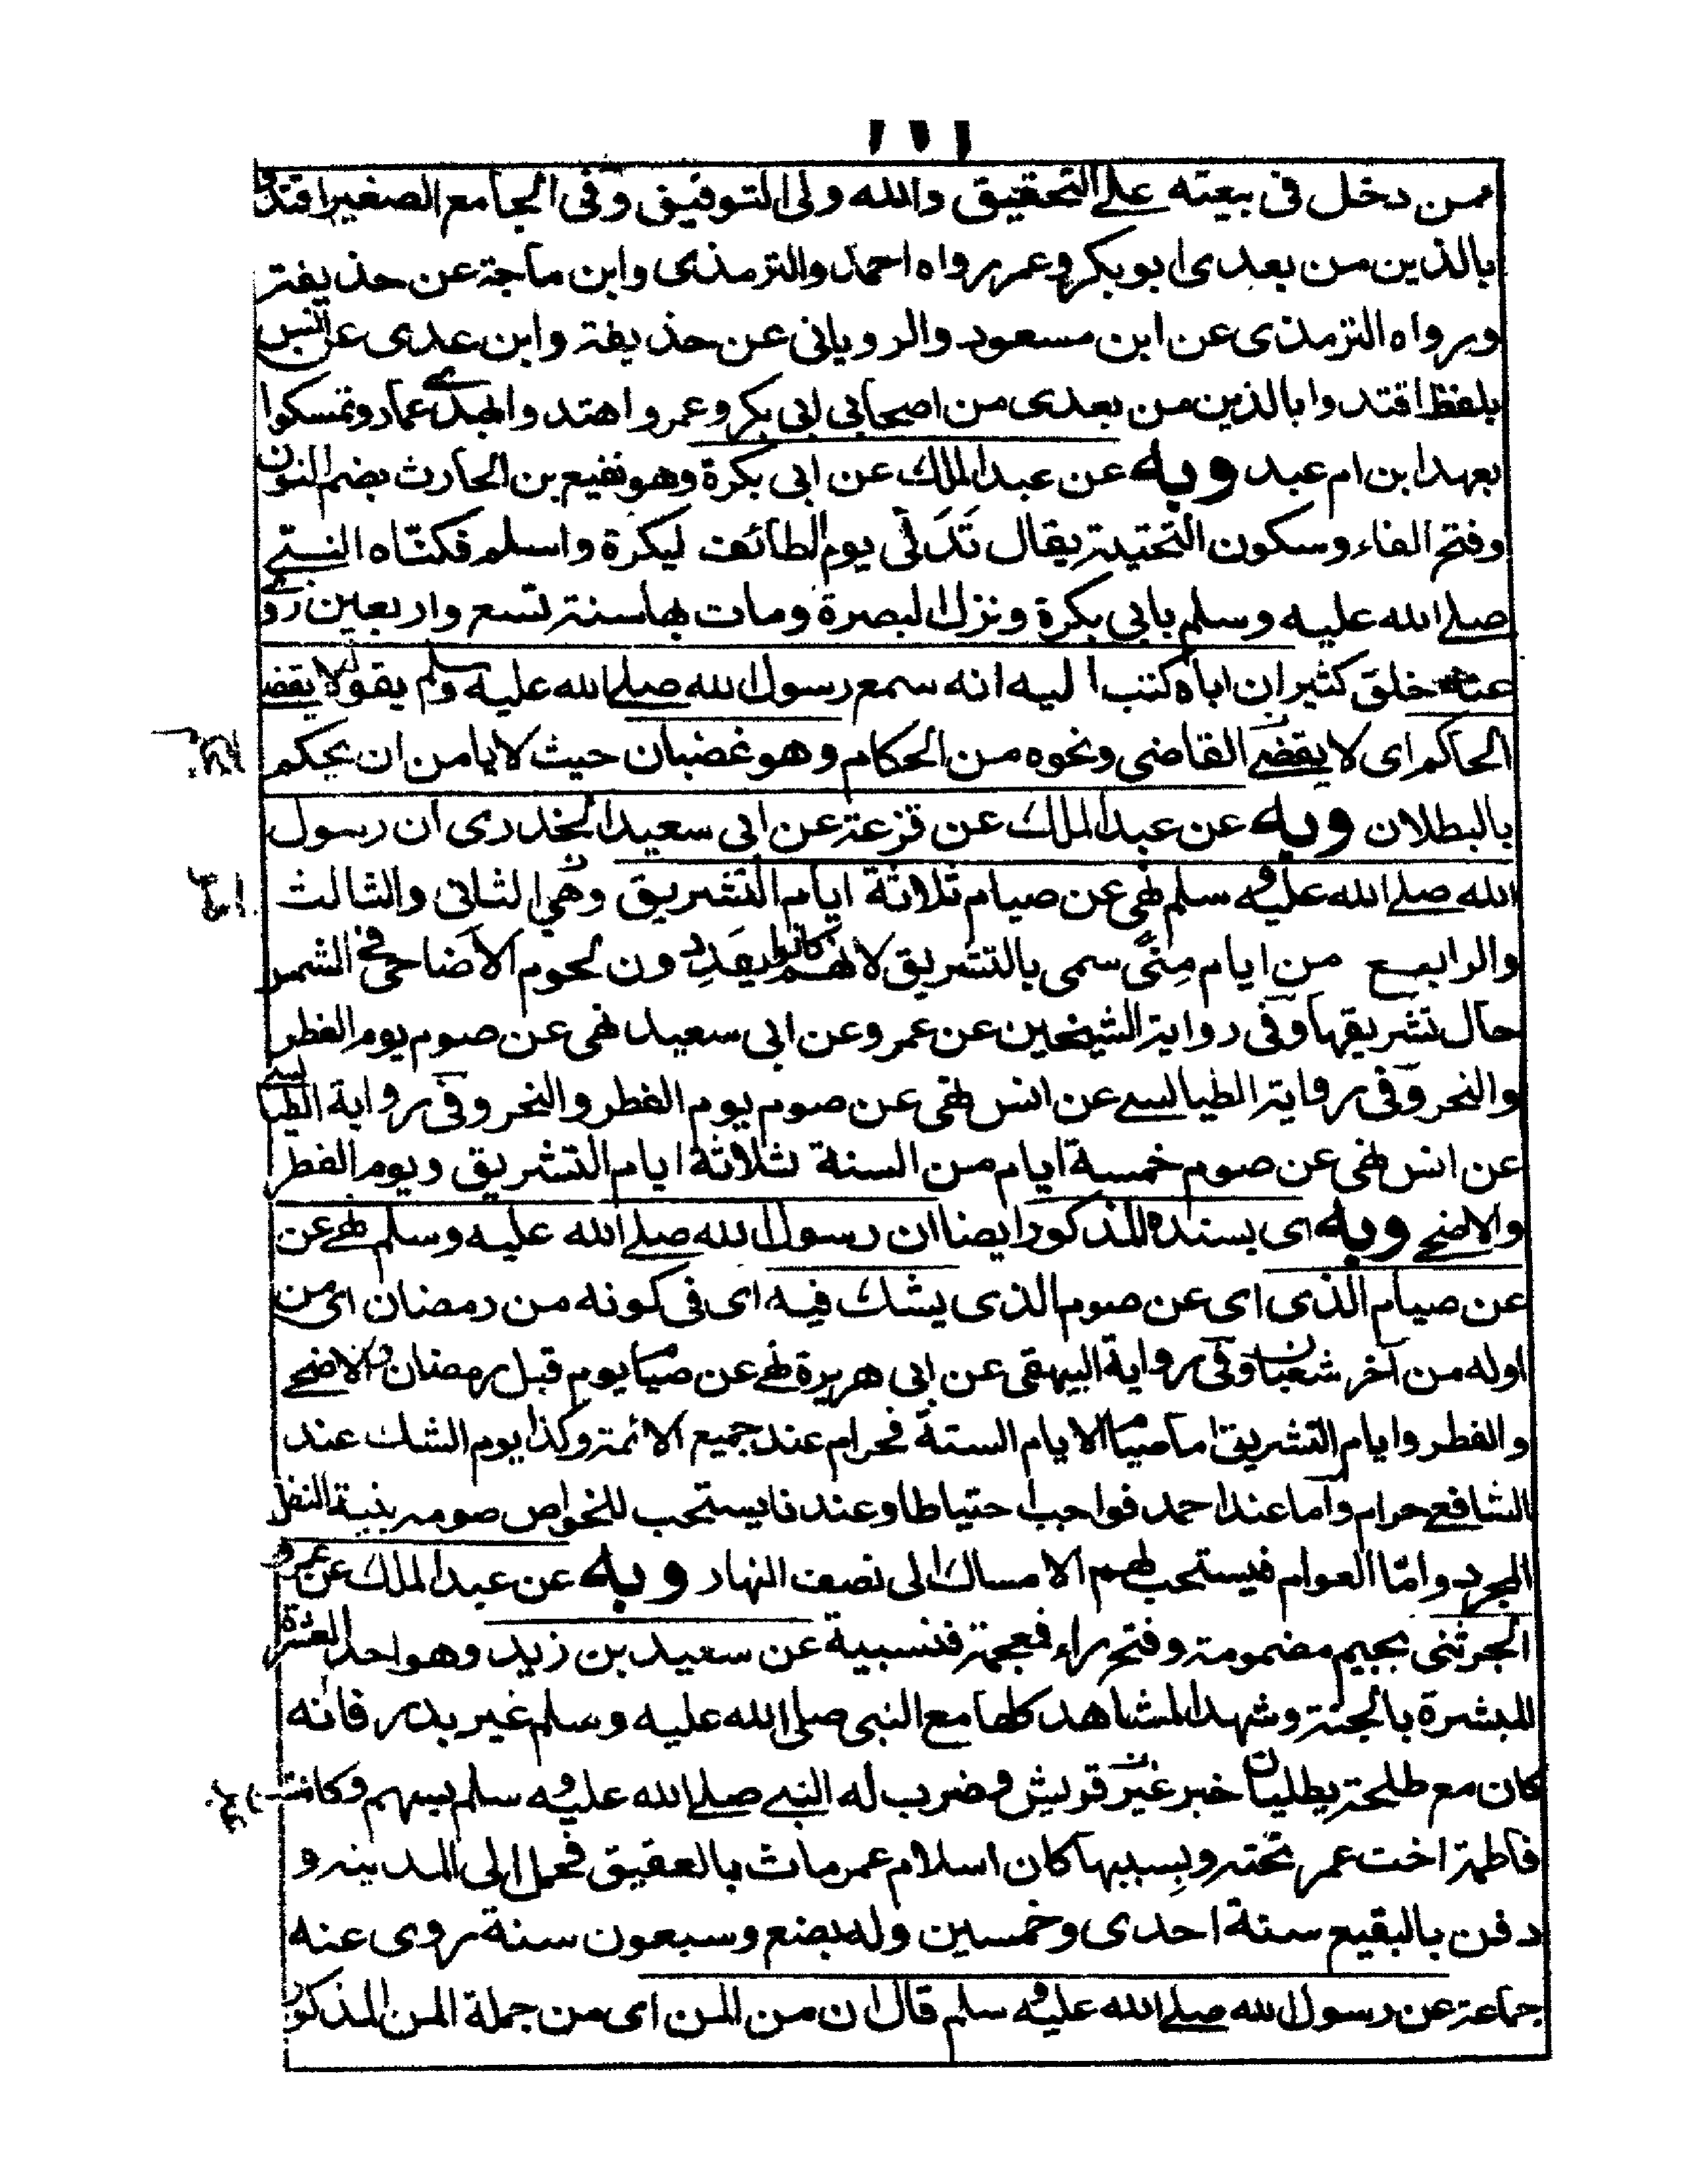 ١١١
ممن دخل فى بيعته على التحقيق والله ولى التوفيق وفى الجامع الصغير اقتدوا
بالذين من بعدى ابو بكر وعمر رواه احمد والترمذى وابن ماجة عن حذيفة
ورواه الترمذى عن ابن مسعود والرويانى عن حذيفة وابن عدى عن انس
بلفظ اقتدوا بالذين من بعدى من اصحابى ابى بكر وعمر واهتدوا بهدى عمار وتمسكوا
بعهد ابن ام عبد وبه عن عبد الملك عن ابى بكرة وهو نفيع بن الحارث بضم النون
وفتح الفاء وسكون التحتية يقال تَدَلّى يوم الطائف لبكرة واسلم فكنّاه النبى
صلى الله عليه وسلم بابى بكرة ونزل البصرة ومات بها سنة تسع واربعين روى
عنه خلق كثير ان اباه كتب اليه انه سمع رسول الله صلى الله عليه وسلم يقول لا يقضى
الحاكم اى لا يقضى القاضى ونحوه من الحكام وهو غضبان حيث لا يامن ان يحكم
بالبطلان وبه عن عبد الملك عن قزعة عن ابى سعيد الخدرى ان رسول
الله صلى الله عليه وسلم نهى عن صيام ثلاثة ايام التشريق وهى الثانى والثالث
والرابع من ايام مِنًى سمى بالتشريق لانهم كانوا يقددون لحوم الاضاحى فى الشمس
حال تشريقها وفى رواية الشيخين عن عمر وعن ابى سعيد نهى عن صوم يوم الفطر
والنحر وفى رواية الطيالسى عن انس نهى عن صوم يوم الفطر والنحر وفى رواية الطيالسى
عن انس نهى عن صوم خمسة ايام من السنة ثلاثة ايام التشريق ويوم الفطر
والاضحى وبه اى بسنده المذكور ايضا ان رسول الله صلى الله عليه وسلم نهى عن
عن صيام الذى اى عن صوم الذى يشك فيه اى فى كونه من رمضان اى من
اوله من آخر شعبان وفى رواية البيهقى عن ابى هريرة نهى عن صيام يوم قبل رمضان والاضحى
والفطر وايام التشريق اما صيام الايام الستة فحرام عند جميع الائمة وكذا يوم الشك عند
الشافعى حرام وأما عند احمد فواجب احتياطا وعندنا يستحب للخواص صومه بنية النفل
المجرد وامّا العوام فيستحب لهم الامساك الى نصف النهار وبه عن عبد الملك عن عمرو
الجرشى بجيم مضمومة وفتح راء فمعجمة فنسبية عن سعيد بن زيد وهو احد العشرة
المبشرة بالجنة وشهد المشاهد كلها مع النبى صلى الله عليه وسلم غير بدر فانه
كان مع طلحة يطلبان خبر عير قريش وضرب له النبى صلى الله عليه وسلم بسهم وكانت
فاطمة اخت عمر تحته وبسببها كان اسلام عمر مات بالعقيق فحمل الى المدينه و
دفن بالبقيع سنة احدى وخمسين وله بضع وسبعون سنة روى عنه
جماعة عن رسول الله صلى الله عليه وسلم قال ان من المن اى من جملة المن المذكور